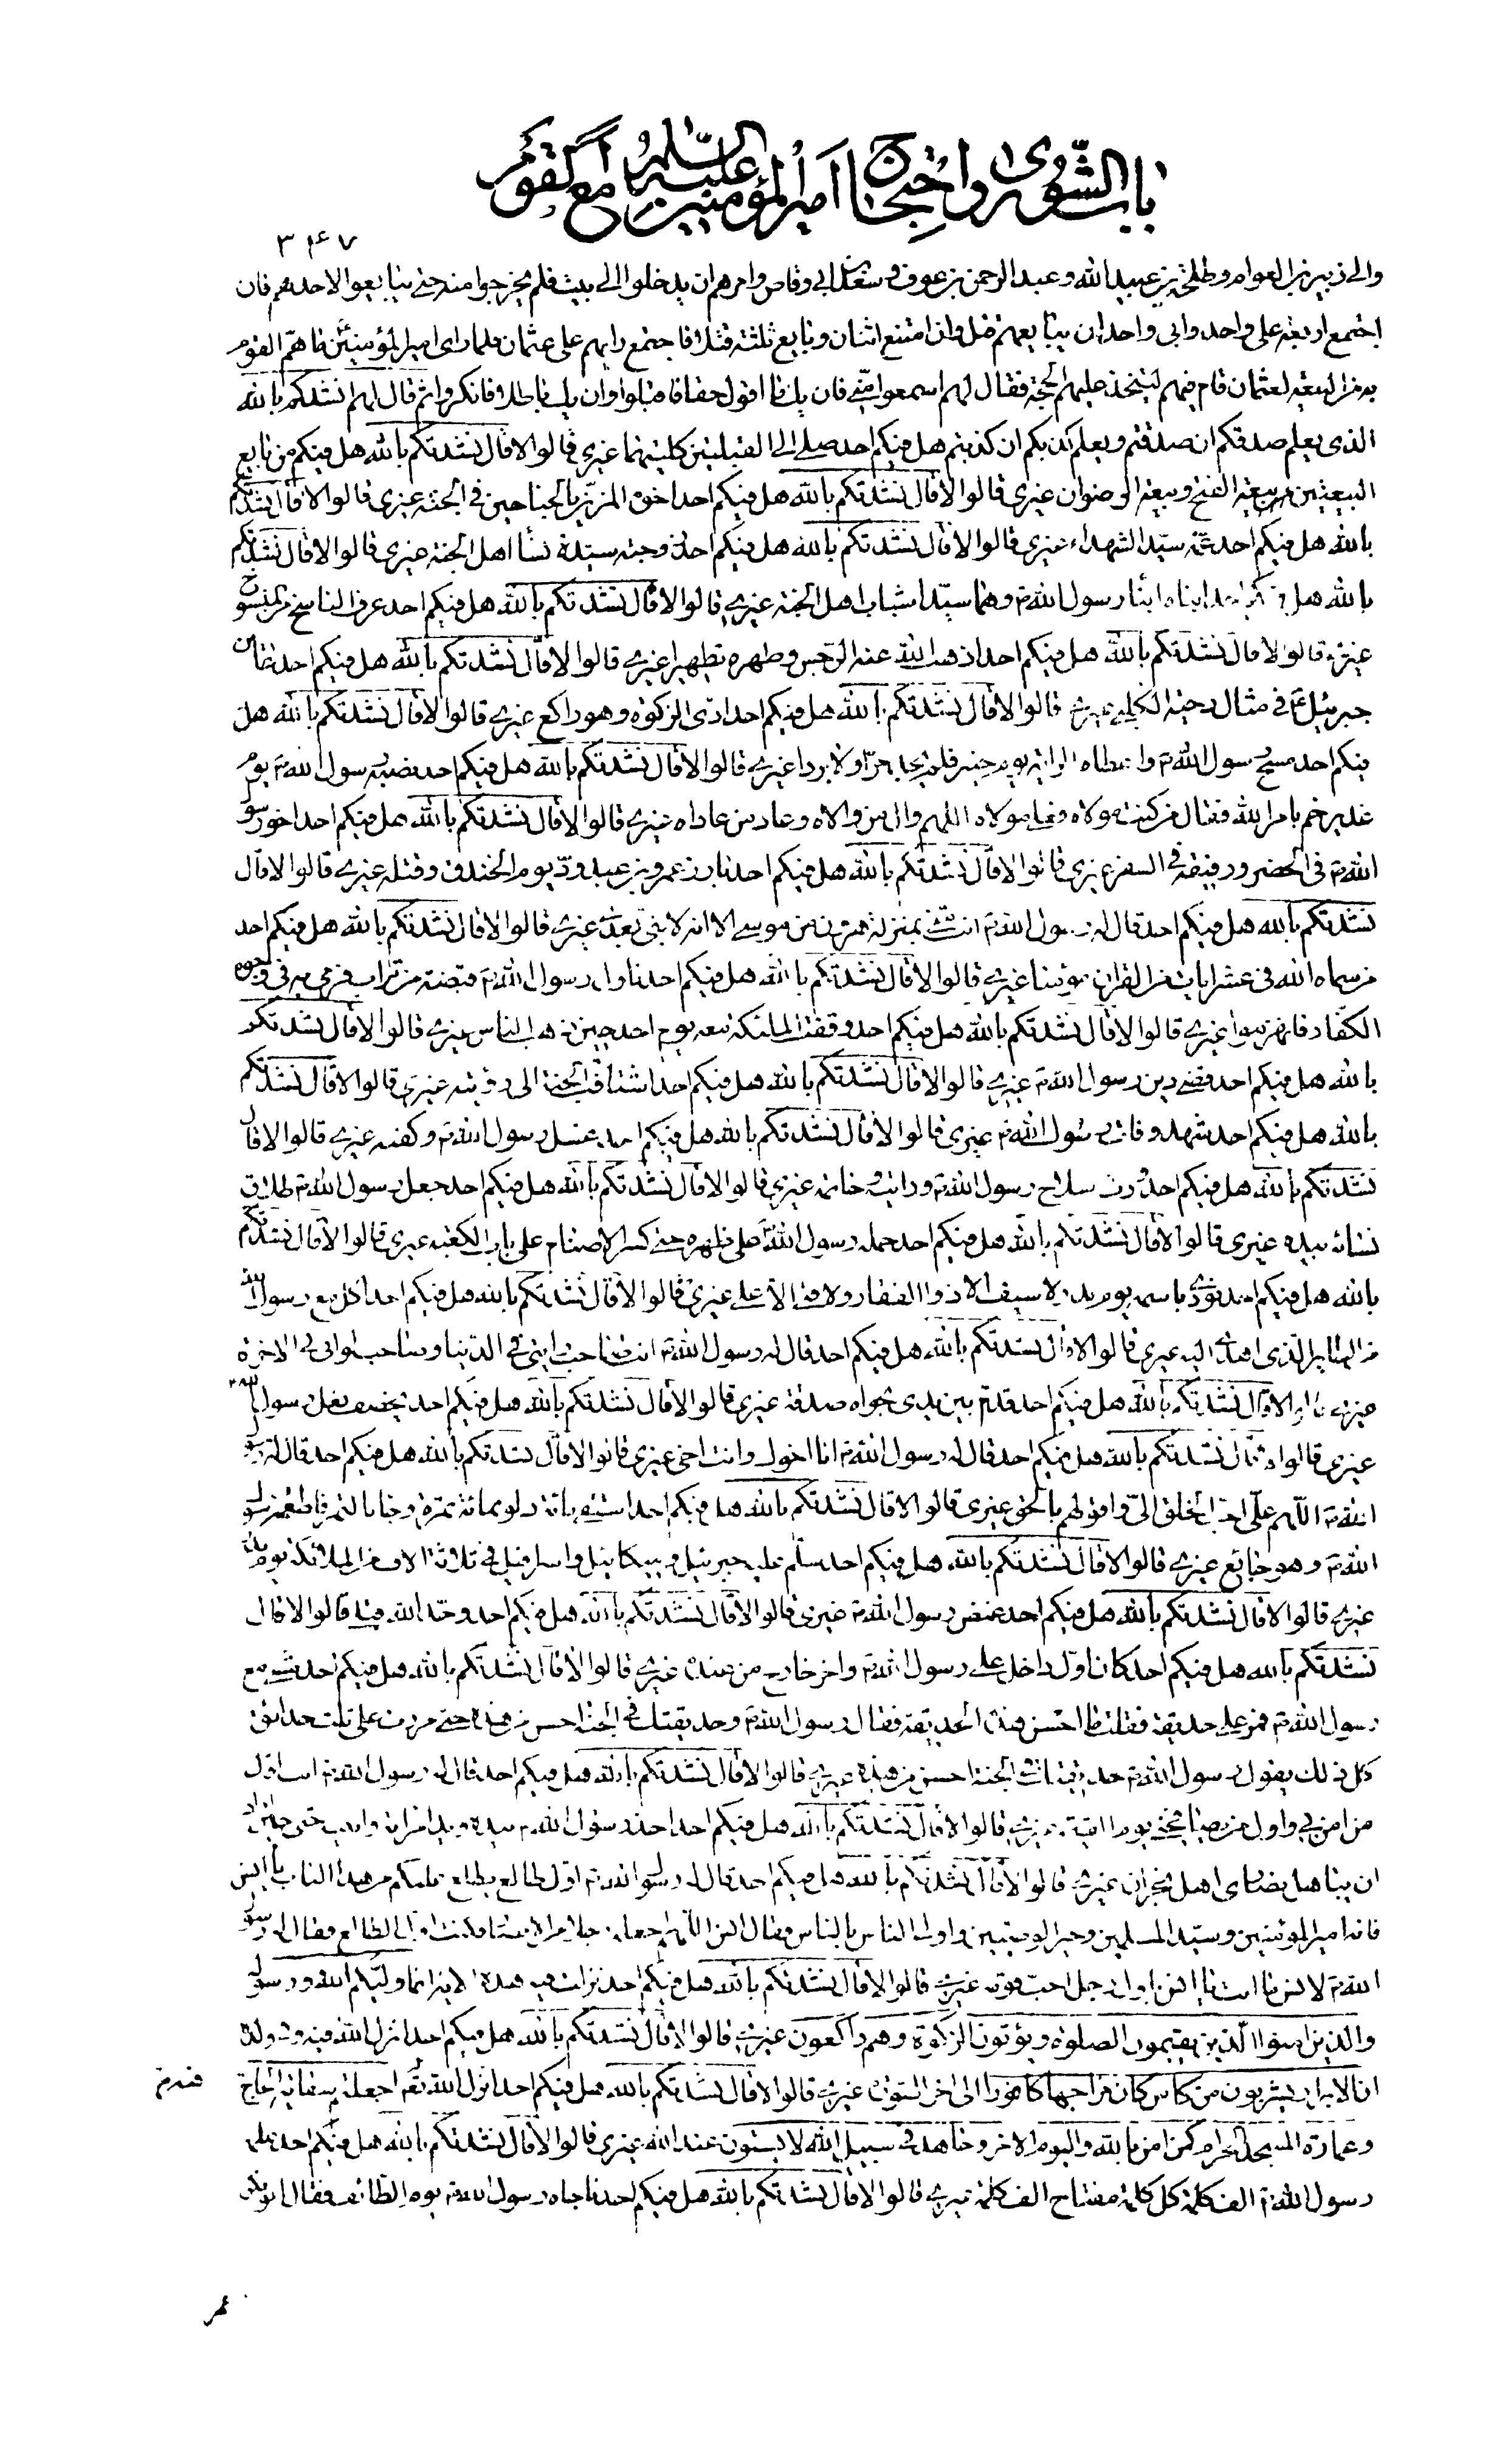 باب الشورى واحتجاج امير المؤمنين عليه السلام مع القوم
٣٤٧
والى زبير بن العوام وطلحة بن عبيد الله وعبد الرحمن بن عوف وسعد بن ابي وقاص وامرهم ان يدخلوا الى بيت فلم يخرجوا منه حتى يبايعوا لاحدهم فان
اجتمع اربعة على واحد وابى واحد ان يبايعهم قتل وان امتنع اثنان وبايع ثلثة قتلا فاجتمع رايهم على عثمان فلما راى امير المؤمنين ما هم القوم
به من البيعة لعثمان قام فيهم ليتخذ عليهم الحجة فقال لهم اسمعوا مني فان يك ما اقول حقا فاقبلوا وان يك باطلا فانكروا ثم قال لهم انشدكم بالله
الذي يعلم صدقكم ان صدقتم ويعلم كذبكم ان كذبتم هل فيكم احد صلى الى القبلتين كلتيهما غيري قالوا لا قال نشدتكم بالله هل فيكم من بايع
البيعتين بيعة الفتح وبيعة الرضوان غيري قالوا لا قال نشدتكم بالله هل فيكم احد اخوه المزين بالجناحين في الجنة غيري قالوا لا قال نشدتكم
بالله هل فيكم احد عمه سيد الشهداء غيري قالوا لا قال نشدتكم بالله هل فيكم احد زوجته سيدة نسا اهل الجنة غيري قالوا لا قال نشدتكم
بالله هل فيكم احد ابناه ابنا رسول الله ص وهما سيدا شباب اهل الجنة غيري قالوا لا قال نشدتكم بالله هل فيكم احد عرف الناسخ من المنسوخ
غيري قالوا لا قال نشدتكم بالله هل فيكم احد اذهب الله عنه الرجس وطهره تطهيرا غيري قالوا لا قال نشدتكم بالله هل فيكم احد عاين
جبرئيل ع في مثال دحية الكلبي غيري قالوا لا قال نشدتكم بالله هل فيكم احد ادى الزكوة وهو راكع غيري قالوا لا قال نشدتكم بالله هل
فيكم احد مسح رسول الله ص واعطاه الراية يوم خيبر فلم يجد حرا ولا بردا غيري قالوا لا قال نشدتكم بالله هل فيكم احد نصبه رسول الله ص يوم
غدير خم بامر الله فقال من كنت مولاه فعلي مولاه اللهم وال من والاه وعاد من عاداه غيري قالوا لا قال نشدتكم بالله هل فيكم احد اخو رسول
الله ص في الحضر ورفيقه في السفر غيري قالوا لا قال نشدتكم بالله هل فيكم احد بارز عمرو بن عبد ود يوم الخندق وقتله غيري قالوا لا قال
نشدتكم بالله هل فيكم احد قال له رسول الله ص انت مني بمنزلة هرون من موسى الا انه لا نبي بعدي غيري قالوا لا قال نشدتكم بالله هل فيكم احد
من سماه الله في عشر ايات من القران مؤمنا غيري قالوا لا قال نشدتكم بالله هل فيكم احد ناول رسول الله ص قبضة من تراب فرمى به في وجوه
الكفار فانهزموا غيري قالوا لا قال نشدتكم بالله هل فيكم احد وقفت الملئكة معه يوم احد حين ذهب الناس غيري قالوا لا قال نشدتكم
بالله هل فيكم احد قضى دين رسول الله ص غيري قالوا لا قال نشدتكم بالله هل فيكم احد اشتاقت الجنة الى رؤيته غيري قالوا لا قال نشدتكم
بالله هل فيكم احد شهد وفاة رسول الله ص غيري قالوا لا قال نشدتكم بالله هل فيكم احد غسل رسول الله ص وكفنه غيري قالوا لا قال
نشدتكم بالله هل فيكم احد ورث سلاح رسول الله ص ورايته وخاتمه غيري قالوا لا قال نشدتكم بالله هل فيكم احد جعل رسول الله ص طلاق
نسائه بيده غيري قالوا لا قال نشدتكم بالله هل فيكم احد حمله رسول الله ص على ظهره حتى كسر الاصنام على باب الكعبة غيري قالوا لا قال نشدتكم
بالله هل فيكم احد نودي باسمه يوم بدر لا سيف الا ذو الفقار ولا فتى الا علي غيري قالوا لا قال نشدتكم بالله هل فيكم احد اكل مع رسول الله
من الطاير الذي اهدي اليه غيري قالوا لا قال نشدتكم بالله هل فيكم احد قال له رسول الله ص انت صاحب رايتي في الدنيا وصاحب لوائي في الاخرة
غيري قالوا لا قال نشدتكم بالله هل فيكم احد قدم بين يدي نجواه صدقة غيري قالوا لا قال نشدتكم بالله هل فيكم احد يخصف نعل رسول الله ص
غيري قالوا لا قال نشدتكم بالله هل فيكم احد قال له رسول الله ص انا اخوك وانت اخي غيري قالوا لا قال نشدتكم بالله هل فيكم احد قال له رسول
الله ص اللهم علي احب الخلق الي واقولهم بالحق غيري قالوا لا قال نشدتكم بالله هل فيكم احد استقى مائة دلو بمائة تمرة وجا بالتمر فاطعم رسول
الله ص وهو جائع غيري قالوا لا قال نشدتكم بالله هل فيكم احد سلم عليه جبرئيل وميكائيل واسرافيل في ثلاثة الاف من الملائكة يوم بدر
غيري قالوا لا قال نشدتكم بالله هل فيكم احد غمض رسول الله ص غيري قالوا لا قال نشدتكم بالله هل فيكم احد وحد الله قبلي قالوا لا قال
نشدتكم بالله هل فيكم احد كان اول داخل على رسول الله ص واخر خارج من عنده غيري قالوا لا قال نشدتكم بالله هل فيكم احد مشى مع
رسول الله ص فمر على حديقة فقلت ما احسن هذه الحديقة فقال رسول الله ص وحديقتك في الجنة احسن من هذه حتى مررت على ثلث حدائق
كل ذلك يقول رسول الله ص حديقتك في الجنة احسن من هذه غيري قالوا لا قال نشدتكم بالله هل فيكم احد قال له رسول الله ص انت اول
من امن بي واول من يصافحني يوم القيمة غيري قالوا لا قال نشدتكم بالله هل فيكم احد اخذ رسول الله ص بيده ويد امراته وابنيه حين اراد
ان يباهل نصارى اهل نجران غيري قالوا لا قال نشدتكم بالله هل فيكم احد قال له رسول الله ص اول طالع يطلع عليكم من هذا الباب يا انس
فانه امير المؤمنين وسيد المسلمين وخير الوصيين واولى الناس بالناس فقال انس اللهم اجعله رجلا من الانصار فكنت انا الطالع فقال رسول
الله ص لانس ما انت يا انس باول رجل احب قومه غيري قالوا لا قال نشدتكم بالله هل فيكم احد نزلت فيه هذه الاية انما وليكم الله ورسوله
والذين امنوا الذين يقيمون الصلوة ويؤتون الزكوة وهم راكعون غيري قالوا لا قال نشدتكم بالله هل فيكم احد انزل الله فيه وفي ولده
ان الابرار يشربون من كاس كان مزاجها كافورا الى اخر السورة غيري قالوا لا قال نشدتكم بالله هل فيكم احد انزل الله فيه اجعلتم سقاية الحاج
وعمارة المسجد الحرام كمن امن بالله واليوم الاخر وجاهد في سبيل الله لا يستون عند الله غيري قالوا لا قال نشدتكم بالله هل فيكم احد علمه
رسول الله ص الف كلمة كل كلمة مفتاح الف كلمة غيري قالوا لا قال نشدتكم بالله هل فيكم احد ناجاه رسول الله ص يوم الطائف فقال ابو بكر
عمر